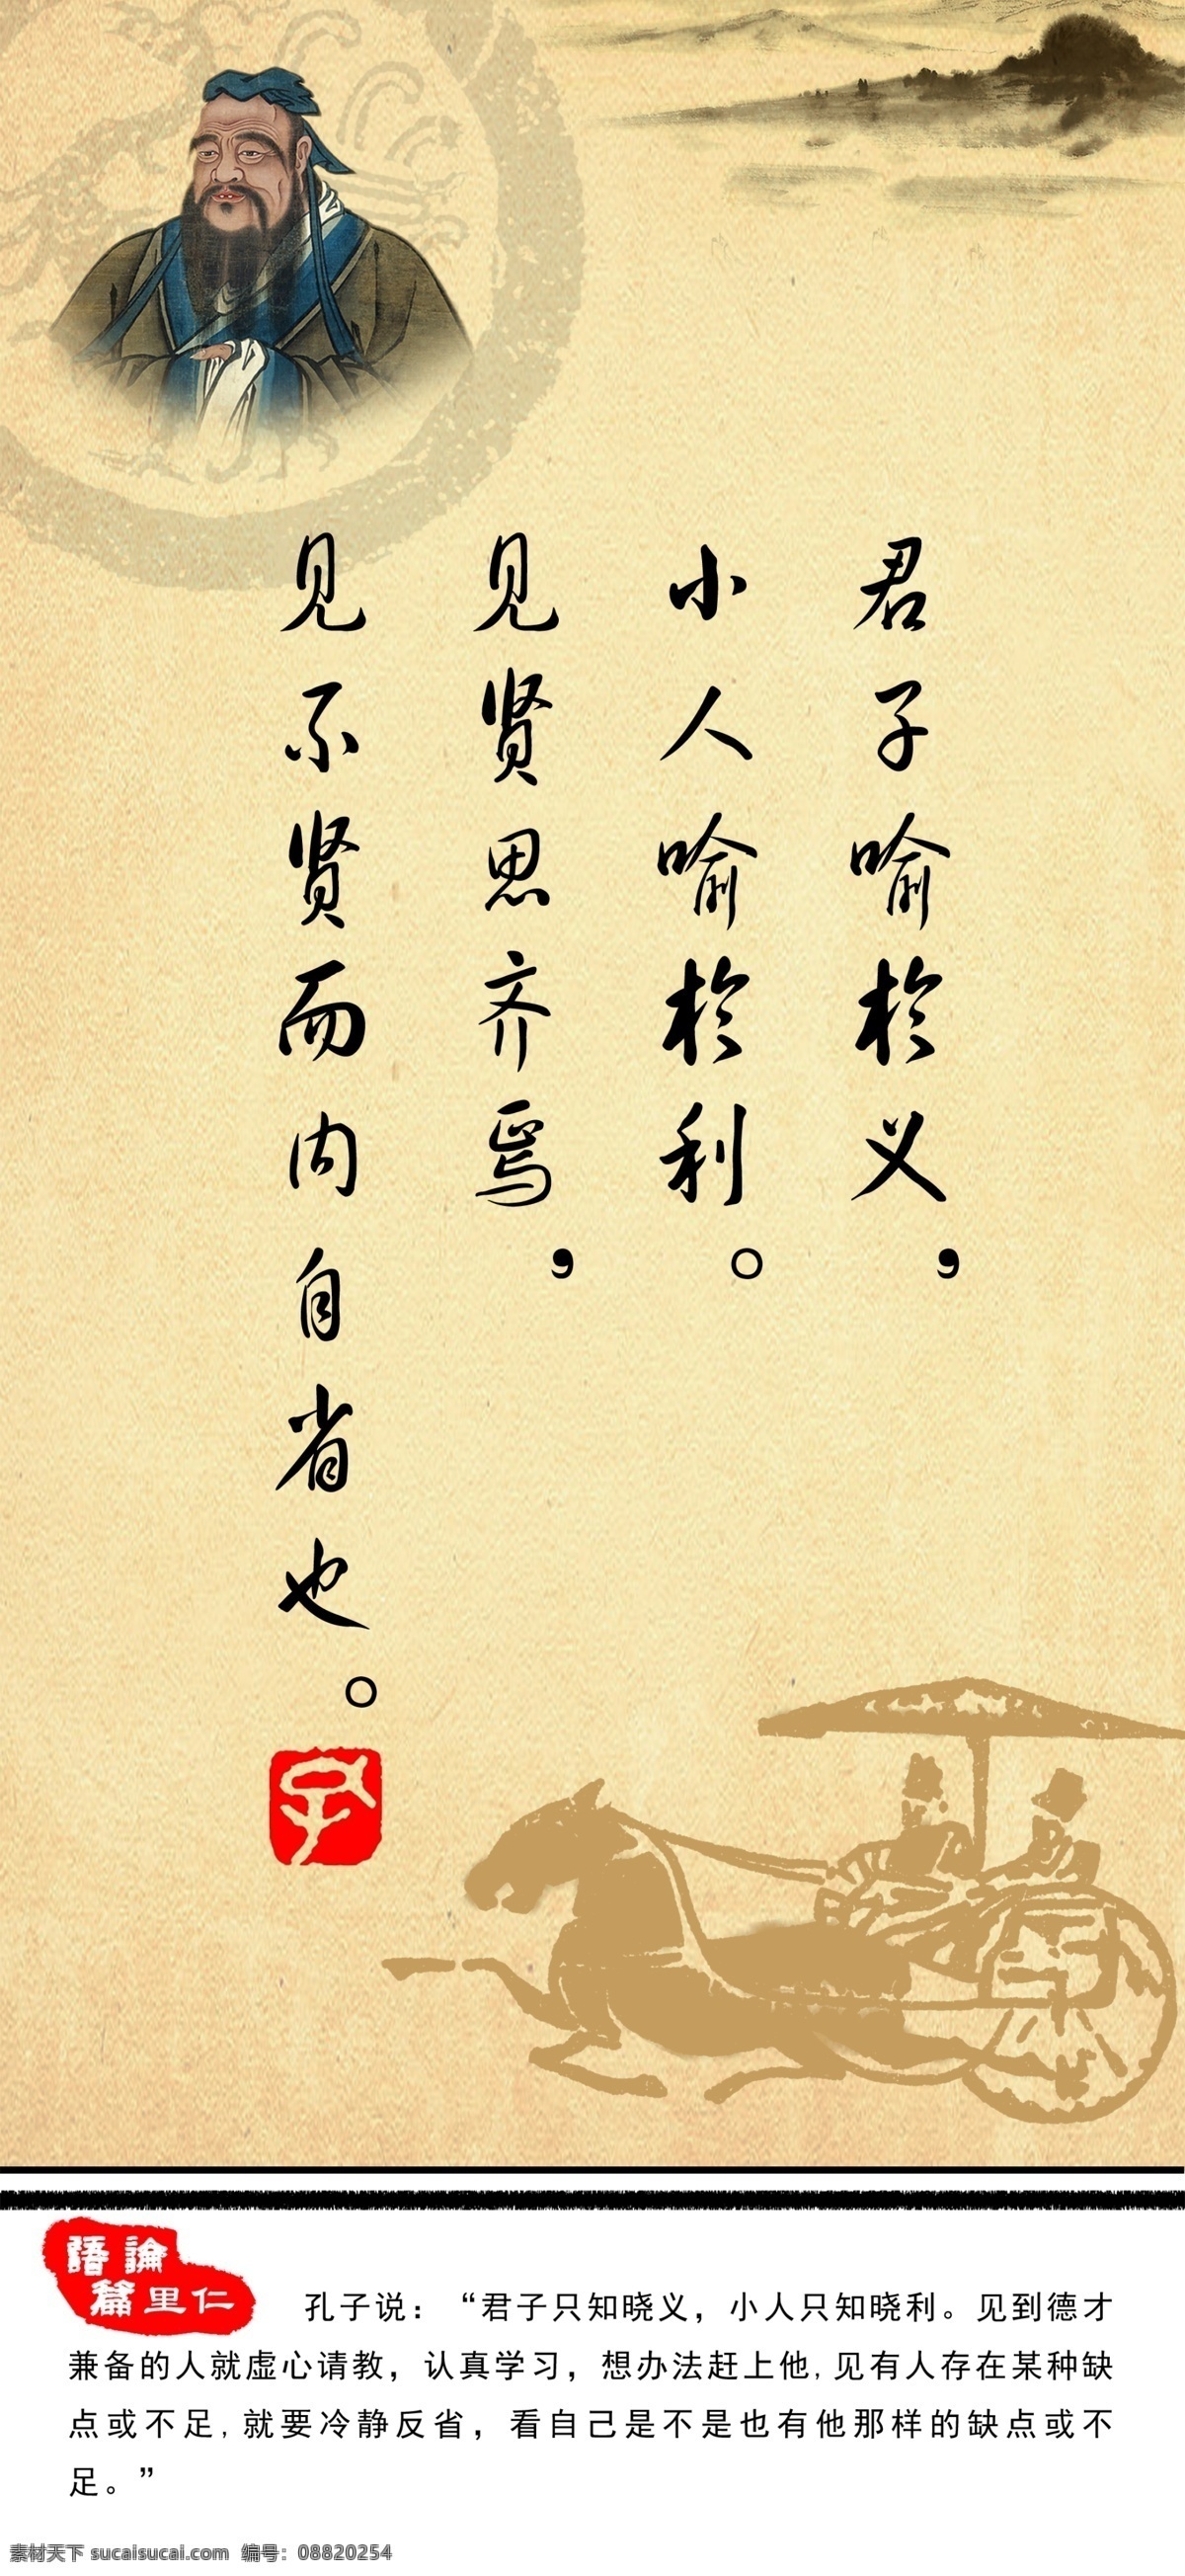 君子喻於义，
小人喻於利。
见贤思齐焉，
见不贤而内自省也。
語論
篇里仁
孔子说：“君子只知晓义，小人只知晓利。见到德才
兼备的人就虚心请教，认真学习，想办法赶上他,见有人存在某种缺
点或不足,就要冷静反省，看自己是不是也有他那样的缺点或不
足。”
素材天下 sucaisucai.com 编号：08820254